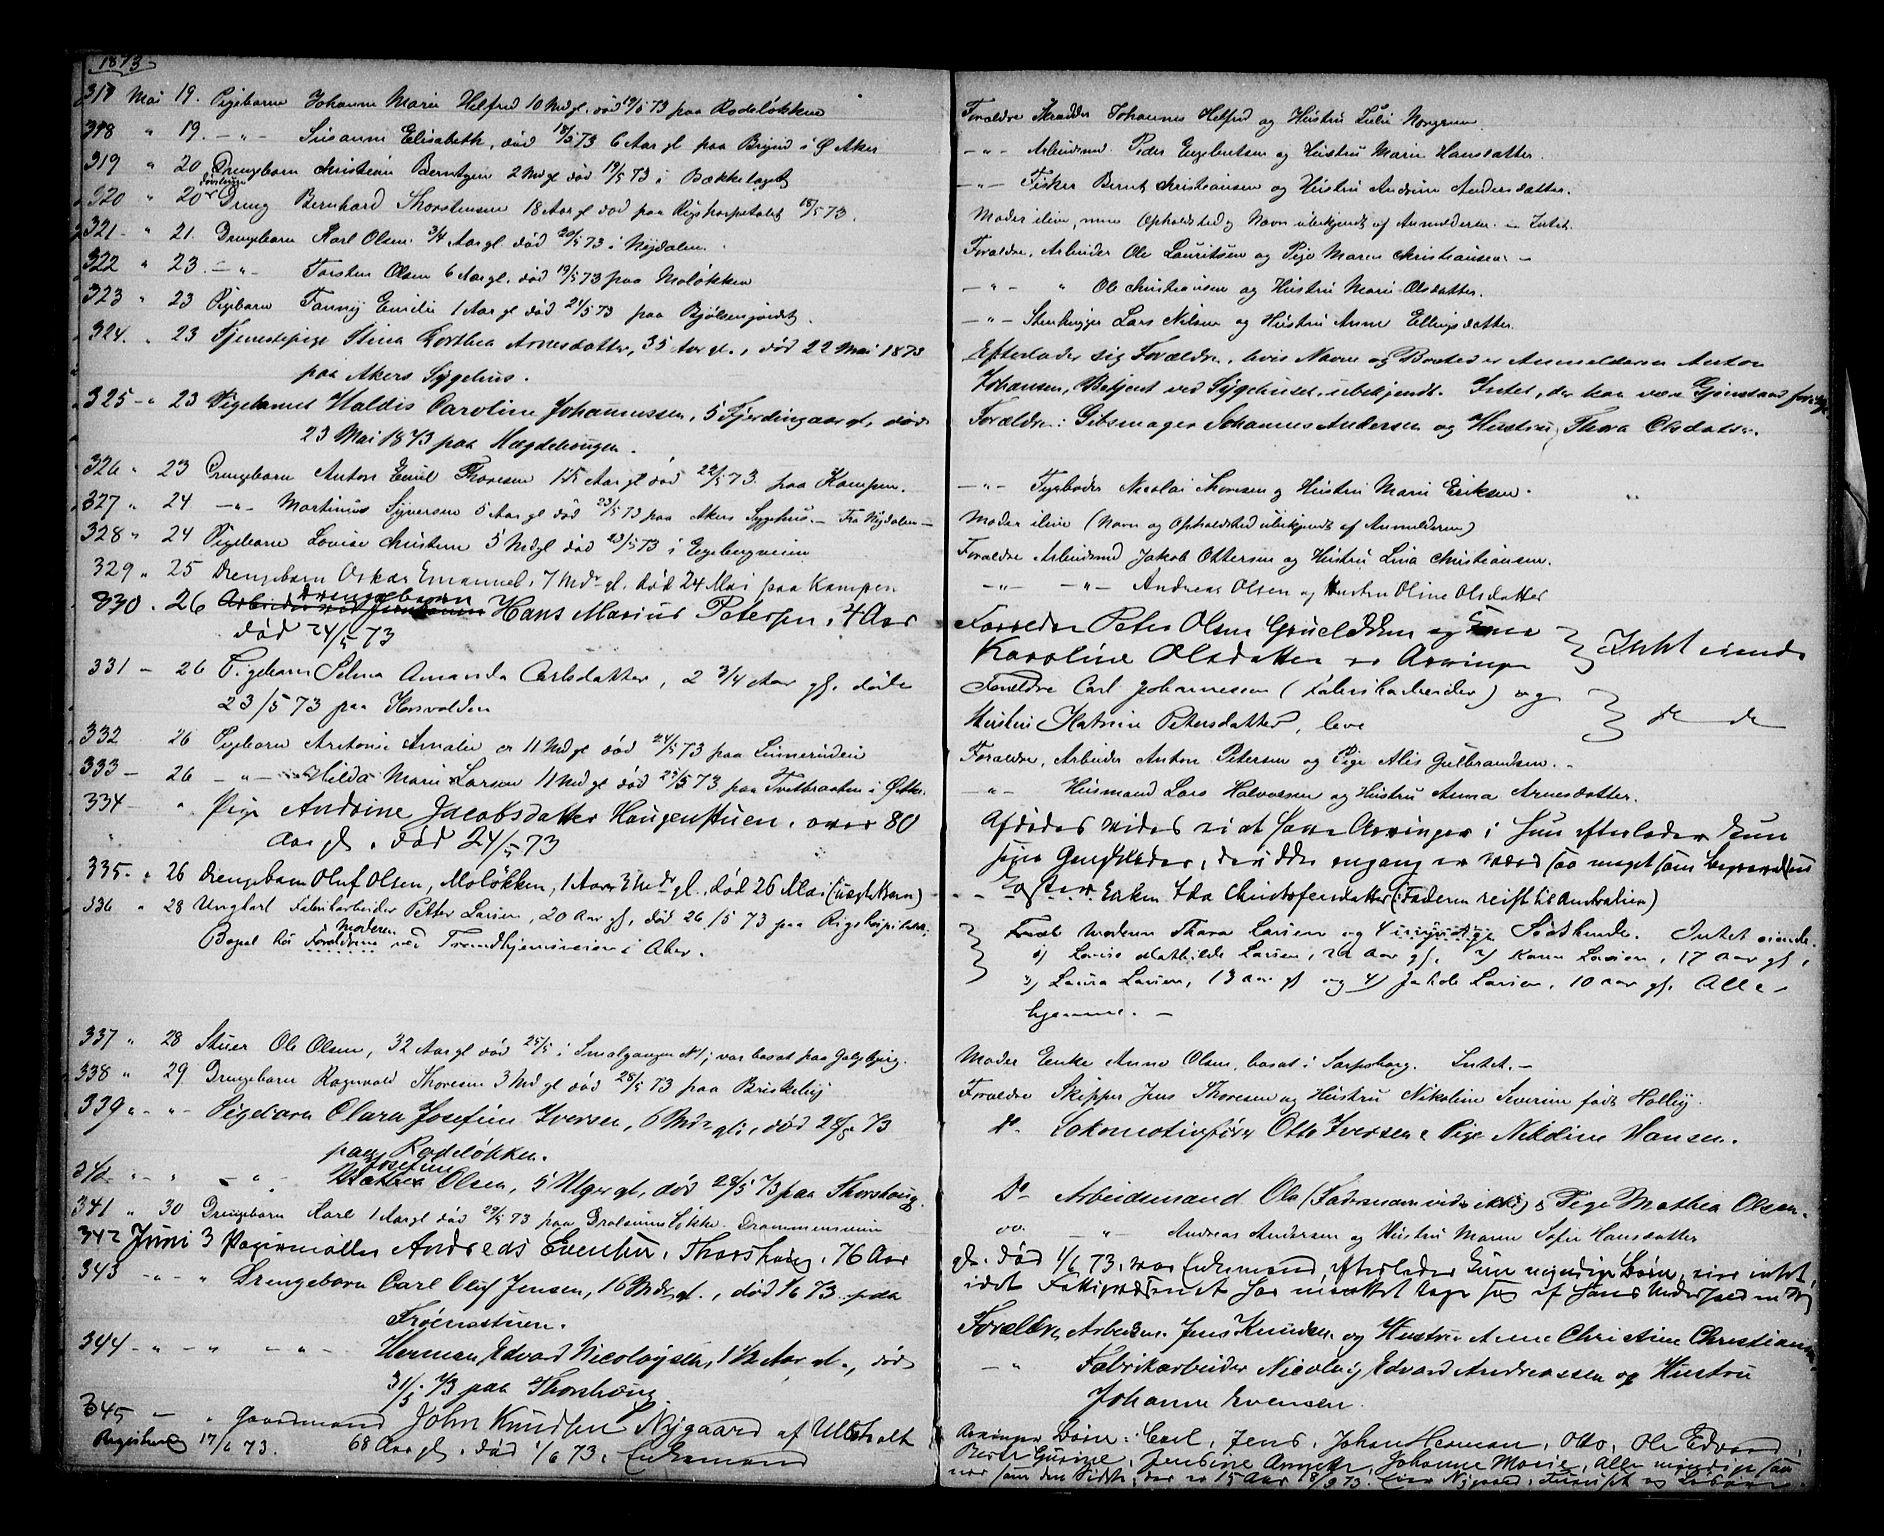 1873
317 Mai 19. Pigebarn Johanne Marie Helfred 10 Md gl. død 19/5 73 paa Rodeløkken
318 " 19. -"- Susanne Elisabeth, død 18/5 73 6 Aar gl paa Bryn i Ø Aker
319 " 20 Drengebarn Christian Berntzen 2 Md gl død 19/5 73 i Bækkelaget
320 " 20 Dreng Bernhard Thorstensen 18 Aar gl død paa Rigshospitalet 18/5 73.
321 - " 21. Drengebarn Karl Olsen 3/4 Aar gl død 20/5 73 i Nydalen.
322 " 23. -"- Torsten Olsen 6 Aar gl. død 19/5 73 paa Moløkken
323 " 23 Pigebarn Fanny Emilie 1 Aar gl død 21/5 73 paa Bjølsenjordet.
324. " 23 Tjenestepige Stina Dorthea Arnesdatter, 35 Aar gl., død 22 Mai 1873
paa Akers Sygehus.
325 - " 23 Pigebarnet Valdis Caroline Johannessen, 5 Fjerdingaar gl., død
23 Mai 1873 paa Hægdehougen.
326 " 23 Drengebarn Anton Emil Thoresen Aar gl død 22/5 73. paa Kampen.
327 " 24 -"- Martinus Syversen 5 Aar gl død 23/5 73 paa Akers Sygehus. - Fra Nydalen -
328 " 24 Pigebarn Lovise Christine 5 Md gl død 23/5 73 i Egebergveien
329 " 25 Drengebarn Oskar Emanuel, 7 Mdr gl. død 24 Mai paa Kampen
330. 26 Drengebarn Hans Marius Petersen, 4 Aar
død 24/5 73
331 - 26 Pigebarn Selma Amanda Carlsdatter, 2 3/4 Aar gl. døde
23/5 73 paa
332 - 26 Pigebarn Antonie Amalie 11 Md gl død 24/5 73 paa Linnerudeie
333 - 26 -"- Hilda Marie Larsen 11 Md gl død 23/5 73 paa Tvetteraaten i Ø Aker.
334 - " Pige Andrine Jacobsdatter Haugenstuen, over 80
Aar gl. død 24/5 73
335 - " 26 Drengebarn Oluf Olsen, Moløkken, 1 Aar 3 Mdr gl. død 26 Mai (uægte Barn)
336 " 28 Ungkarl Fabrikarbeider Petter Larsen, 20 Aar gl, død 26/5 73 paa Rigshospitalet.
Bopæl hos Moderen ved Trondhjemsveien i Aker.
337 " 28 Stuer Ole Olsen, 32 Aar gl død 25/5 i Smalgangen No 1; var bosat paa Galgebjerg.
338 " 29 Drengebarn Ragnvald Thoresen 3 Md gl død 28/5 73 paa Briskeby
339 " - "- Pigebarn Clara Josefine Iversen, 6 Mdr gl., død 28/5 73
paa Rodeløkken.
Josefine
340 " - " - " Mathea Olsen, 5 Uger gl., død 28/5 73 paa Thorshoug.
341 " 30 Drengebarn Karl 1 Aar gl død 29/5 73 paa Løkke Drammensveien
342 Juni 3 Papirmøller Andreas Evensen, Thorshaug, 76 Aar
343 - " - " Drengebarn Carl Oluf Jensen, 16 Mdr gl., død 1/6 73 paa
Frøenstuen.
344 - " - " " - " - Herman Edvard Nicolaysen, 1 1/2 Aar gl., død
31/5 73 paa Thorshoug
345 - " Gaardmand John Knudsen Nygaard af Ullevolt
Registreret 17/6 73. 68 Aar gl. død 1/6 73. Enkemand
Forældre Skrædder Johannes Helfred og Hustru Julie Norgreen.
-"- Arbeidsmd. Peder Engebretsen og Hustru Marie Hansdatter.
-"- Fisker Bernt Christiansen og Hustru Andrine Andersdatter.
Moder ilive, men Opholdsted og Navn ubekjendt af Anmelderen. - Intet.
Forældre, Arbeider Ole Lauritsen og Pige Maren Christiansen -
-"- " Ole Christiansen og Hustru Marie Olsdatter.
-"- Stenhugger Lars Nilsen og Hustru Anne Ellingsdatter.
Efterlader sig Forældre, hvis Navne og Bosted er Anmelderen Anton
Johansen, Betjent ved Sygehuset, ubekjendt. Intet, der kan være Gjenstand for Skifte
Forældre: Gibsmager Johannes Andersen og Hustru Thora Olsdatter.
-"- Fyrbøder Nicolai Thoresen og Hustru Marie Eriksen. "
Moder ilive (Navn og Opholdsted ubekjendt af Anmelderen)
Forældre Arbeidsmd Jakob Ottersen og Hustru Lina Christiansen.
-"- -"- Andreas Olsen og Hustru Oline Olsdatter
Forældre Peter Olsen og Kone
Karoline Olsdatter er Arvinger } Intet eiende
Forældre Carl Johannessen (Fabrikarbeider) og
Hustru Katrine Petersdatter, leve } do do
Forældre, Arbeider Anton Petersen og Pige Alis Gulbrandsen. -
-"- Husmand Lars Halvorsen og Hustru Anna Arnesdatter.
Afdødes vides ei at have Arvinger i hun efterlader kun
sine Gangklæder, der ikke engang er værd saa meget som begravelsen
Enken Ida Christofersdatter (Faderen reist til Australien)
Moderen Thora Larsen og 4 umyndige Sødskende. Intet eiende.
1) Lovise Mathilde Larsen, 22 Aar gl, 2) Karen Larsen, 17 Aar gl,
3) Laura Larsen, 13 Aar gl og 4) Jakob Larsen, 10 Aar gl. Alle
hjemme. -
Moder Enke Anne Olsen, bosat i Sarpsborg. Intet. -
Forældre Skipper Jens Thoresen og Hustru Nikoline Severine født Holby.
do. Lokomotivfører Otto Iversen & Pige Nikoline Hansen.
do Arbeidsmand Ola (Fadernavn vides ikke) & Pige Mathea Olsen.
do. - " - Andreas Andersen og Hustru Maren Sofie Hansdatter
gl. død 1/6 73, var Enkemand, efterlader kun myndige Børn, eier intet,
idet Fattigvæsenet har maattet tage sig af hans Underhold
Forældre, Arbeidsm. Jens Knudsen og Hustru Anne Christine Christiansen
- " Fabrikarbeider Nicolai Edvard Andreassen og Hustru
Johanne Evensen.
Arvinger Børn: Carl, Jens, Johan Herman, Otto, Ole Edvard,
Berte Gurine, Jensine Annette, Johanne Marie, Alle myndige saa
nær som den Sidste, der er 15 Aar 18/9 73.